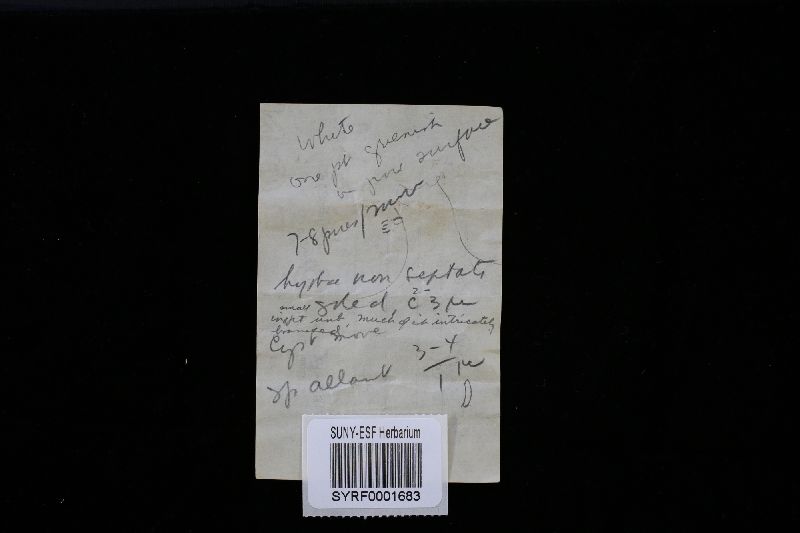 White
one pt greenish
on pore surface
7-8 pores/mm
hyphae non septate
small gded, c̄ 2-3 µ
impt unb, much of it intricately
branched
Cyst none
sp allant 3-4
1 µ
SUNY-ESF Herbarium
SYRF0001683